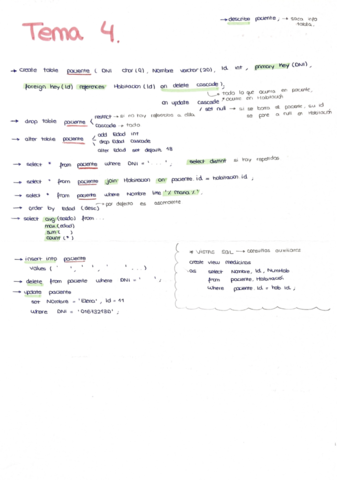 Tema 4.
→ describe paciente; → saca info tabla.
→ Create table paciente ( DNI char(9), Nombre varchar(20), id int, primary key (DNI),
foreign key (id) references Habitacion (id) on delete cascade
→ todo lo que ocurra en paciente,
ocurre en Habitacion
on update cascade
/ set null → si se borra el paciente, su id
se pone a null en Habitación
→ drop table paciente
restrict → si no hay referencias a ella
cascade → todo
→ alter table paciente
add Edad int
drop Edad cascade
alter Edad set default 18
→ select * from paciente where DNI = '....'; select distinct si hay repetidas
→ select * from paciente join Habitacion on paciente.id = habitacion.id ;
→ select * from paciente where Nombre like '% Maria %'.
→ order by Edad (desc) → por defecto es ascendente
→ select avg (sueldo) from ...
max (edad)
sum ( )
count (*)
→ insert into paciente
values ( ' ', ' ', ' ', ' ' ...)
→ delete from paciente where DNI = ' ';
→ update paciente
set Nombre = 'Elena', id = 11
where DNI = ;
* Vistas SQL → consultas auxiliares
create view medicinas
as select Nombre, id, NumHab
from paciente, Habitacion
where paciente.id = hab.id ;